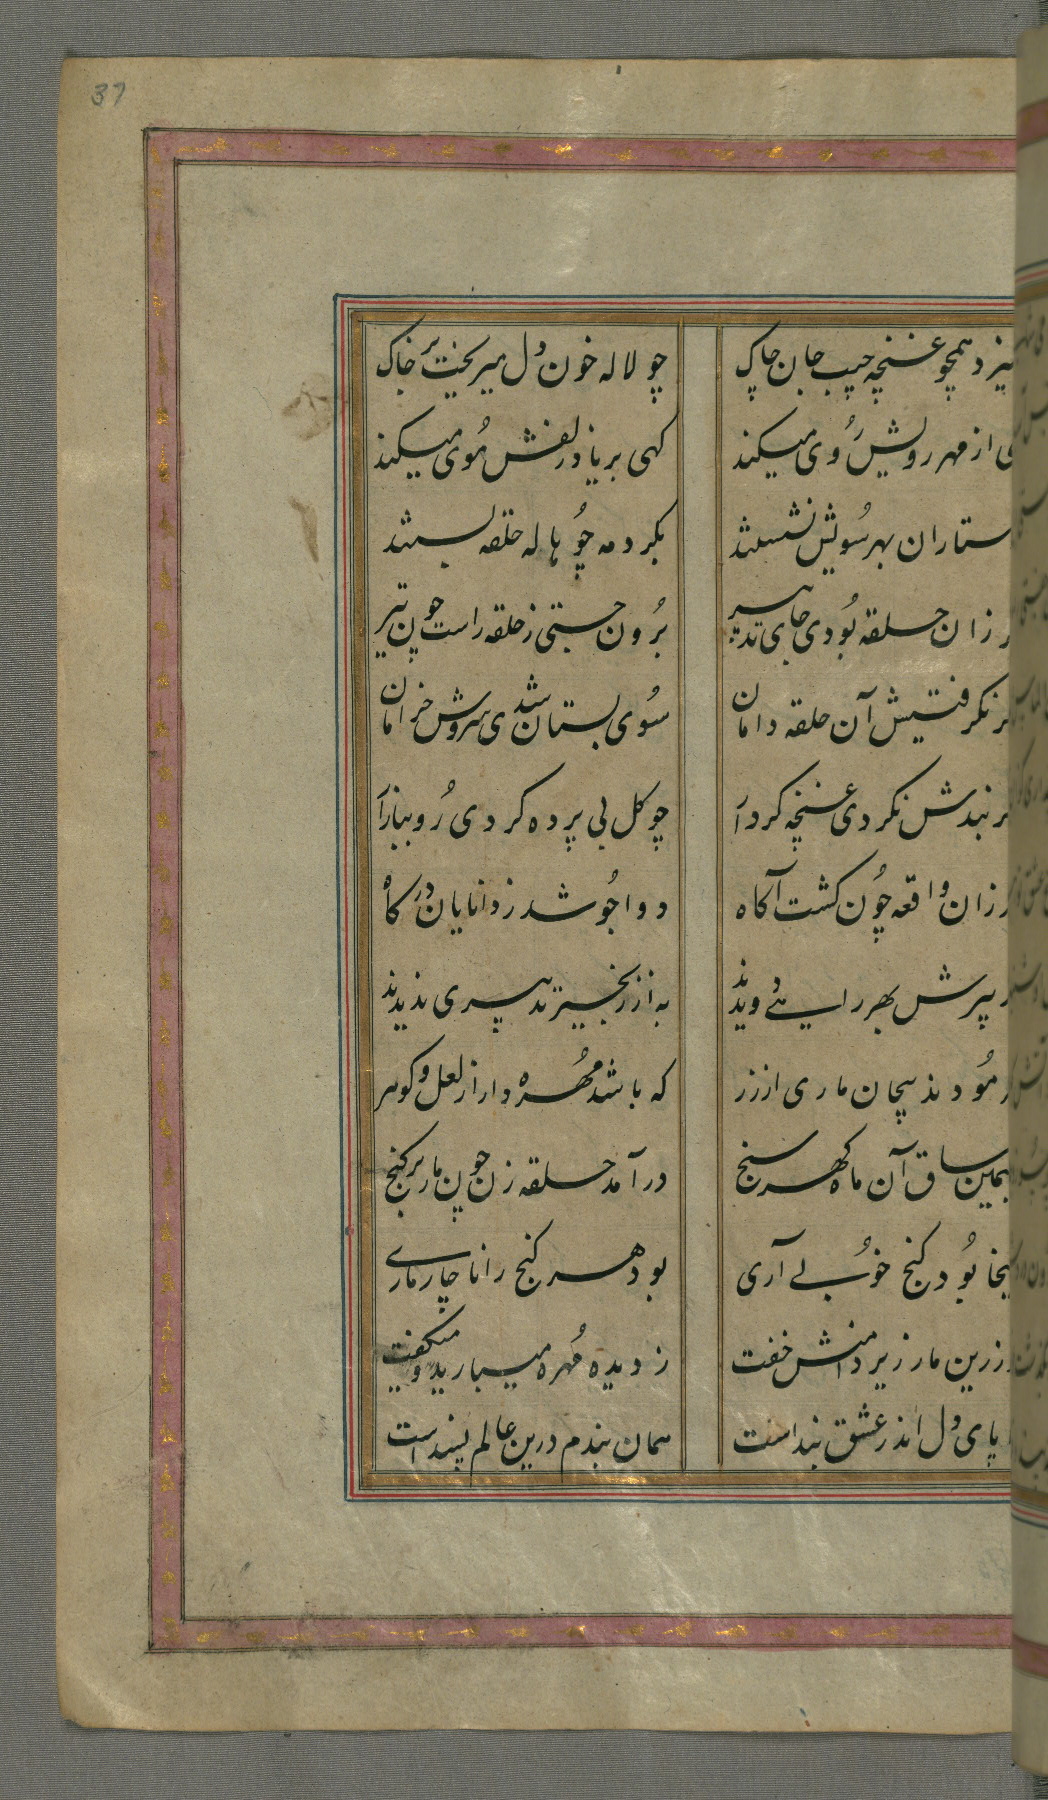 37
همچو غنچه جیب جان چاک چو لاله خون دل میریخت بر خاک
از مهر رویش روی میکند کهی بر یاد زلفش موی میکند
بهر سویش نشستند بکرد مه چو هاله حلقه بستند
زان حلقه بودی جای تدبیر برون جستی ز حلقه راست چون تیر
نکرفتیش آن حلقه دامان سوی بستان شدی سروش خرامان
بندش نکردی غنچه کردار چو کل بی پرده کردی رو ببازار
زان واقعه چون کشت آکاه دوا جو شد ز دانایان درکاه
بهر رایی دویدند به از زنجیر تدبیری ندیدند
پیچان ماری از زر که باشد مهره دار از لعل و کوهر
ساق آن ماه کهر سنج درآمد حلقه زن چون مار بر کنج
بود کنج خوبی آری بود هر کنج را ناچار ماری
زرین مار زیر دامنش خفت ز دیده مهره میبارید و میکفت
پای دل اندر عشق بند است همان بندم درین عالم پسند است